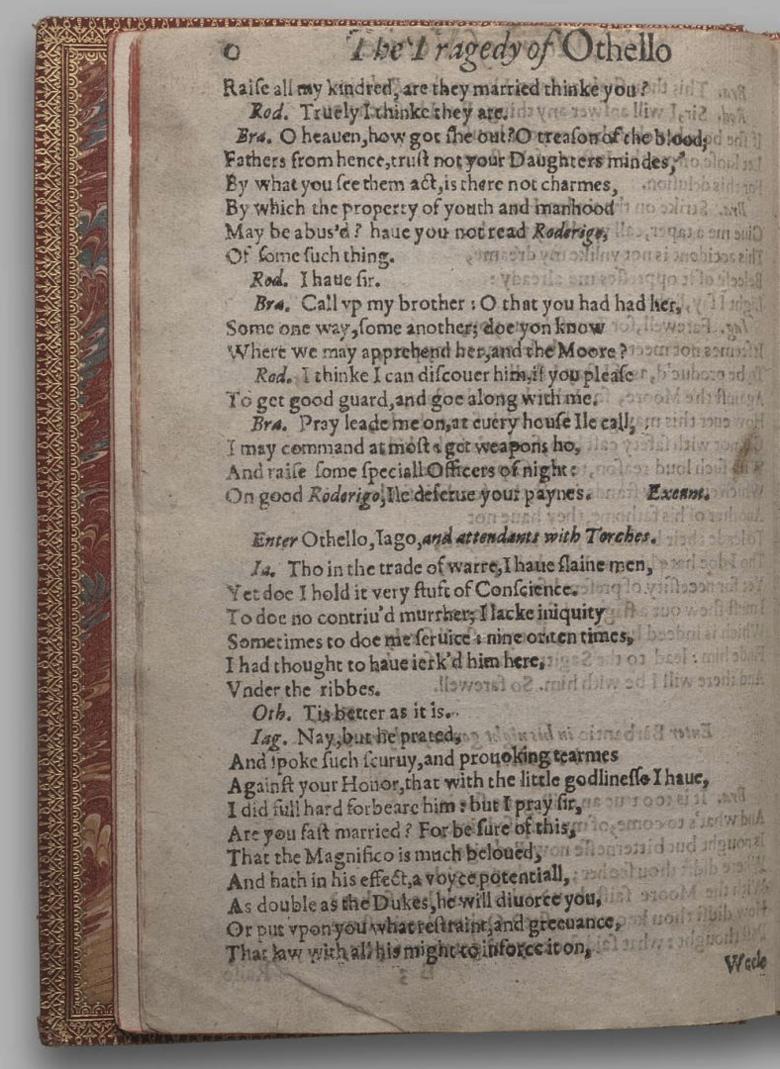 6 The Tragedy of Othello
Raiſe all my kindred, are they married thinke you?
Rod. Truely I thinke they are.
Bra. O heauen, how got ſhe out? O treaſon of the blood;
Fathers from hence, truſt not your Daughters mindes,
By what you ſee them act, is there not charmes,
By which the property of youth and manhood
May be abus'd? haue you not read Roderigo,
Of ſome ſuch thing.
Rod. I haue ſir.
Bra. Call vp my brother: O that you had had her,
Some one way, ſome another; doe yon know
Where we may apprehend her, and the Moore?
Rod. I thinke I can diſcouer him, if you pleaſe
To get good guard, and goe along with me.
Bra. Pray leade me on, at euery houſe Ile call,
I may command at moſt: get weapons ho,
And raiſe ſome ſpeciall Officers of night:
On good Roderigo, Ile deſerue your paynes. Exeunt.
Enter Othello, Iago, and attendants with Torches.
Ia. Tho in the trade of warre, I haue ſlaine men,
Yet doe I hold it very ſtuft of Conſcience.
To doe no contriu'd murther; I lacke iniquity
Sometimes to doe me ſeruice: nine or ten times,
I had thought to haue ierk'd him here,
Vnder the ribbes.
Oth. Tis better as it is.
Iag. Nay, but he prated,
And ſpoke ſuch ſcuruy, and prouoking tearmes
Againſt your Honor, that with the little godlineſſe I haue,
I did full hard forbeare him: but I pray ſir,
Are you faſt married? For be ſure of this,
That the Magnifico is much beloued,
And hath in his effect, a voyce potentiall,
As double as the Dukes, he will diuorce you,
Or put vpon you what reſtraint, and greeuance,
That law with all his might to inforce it on,
Weele